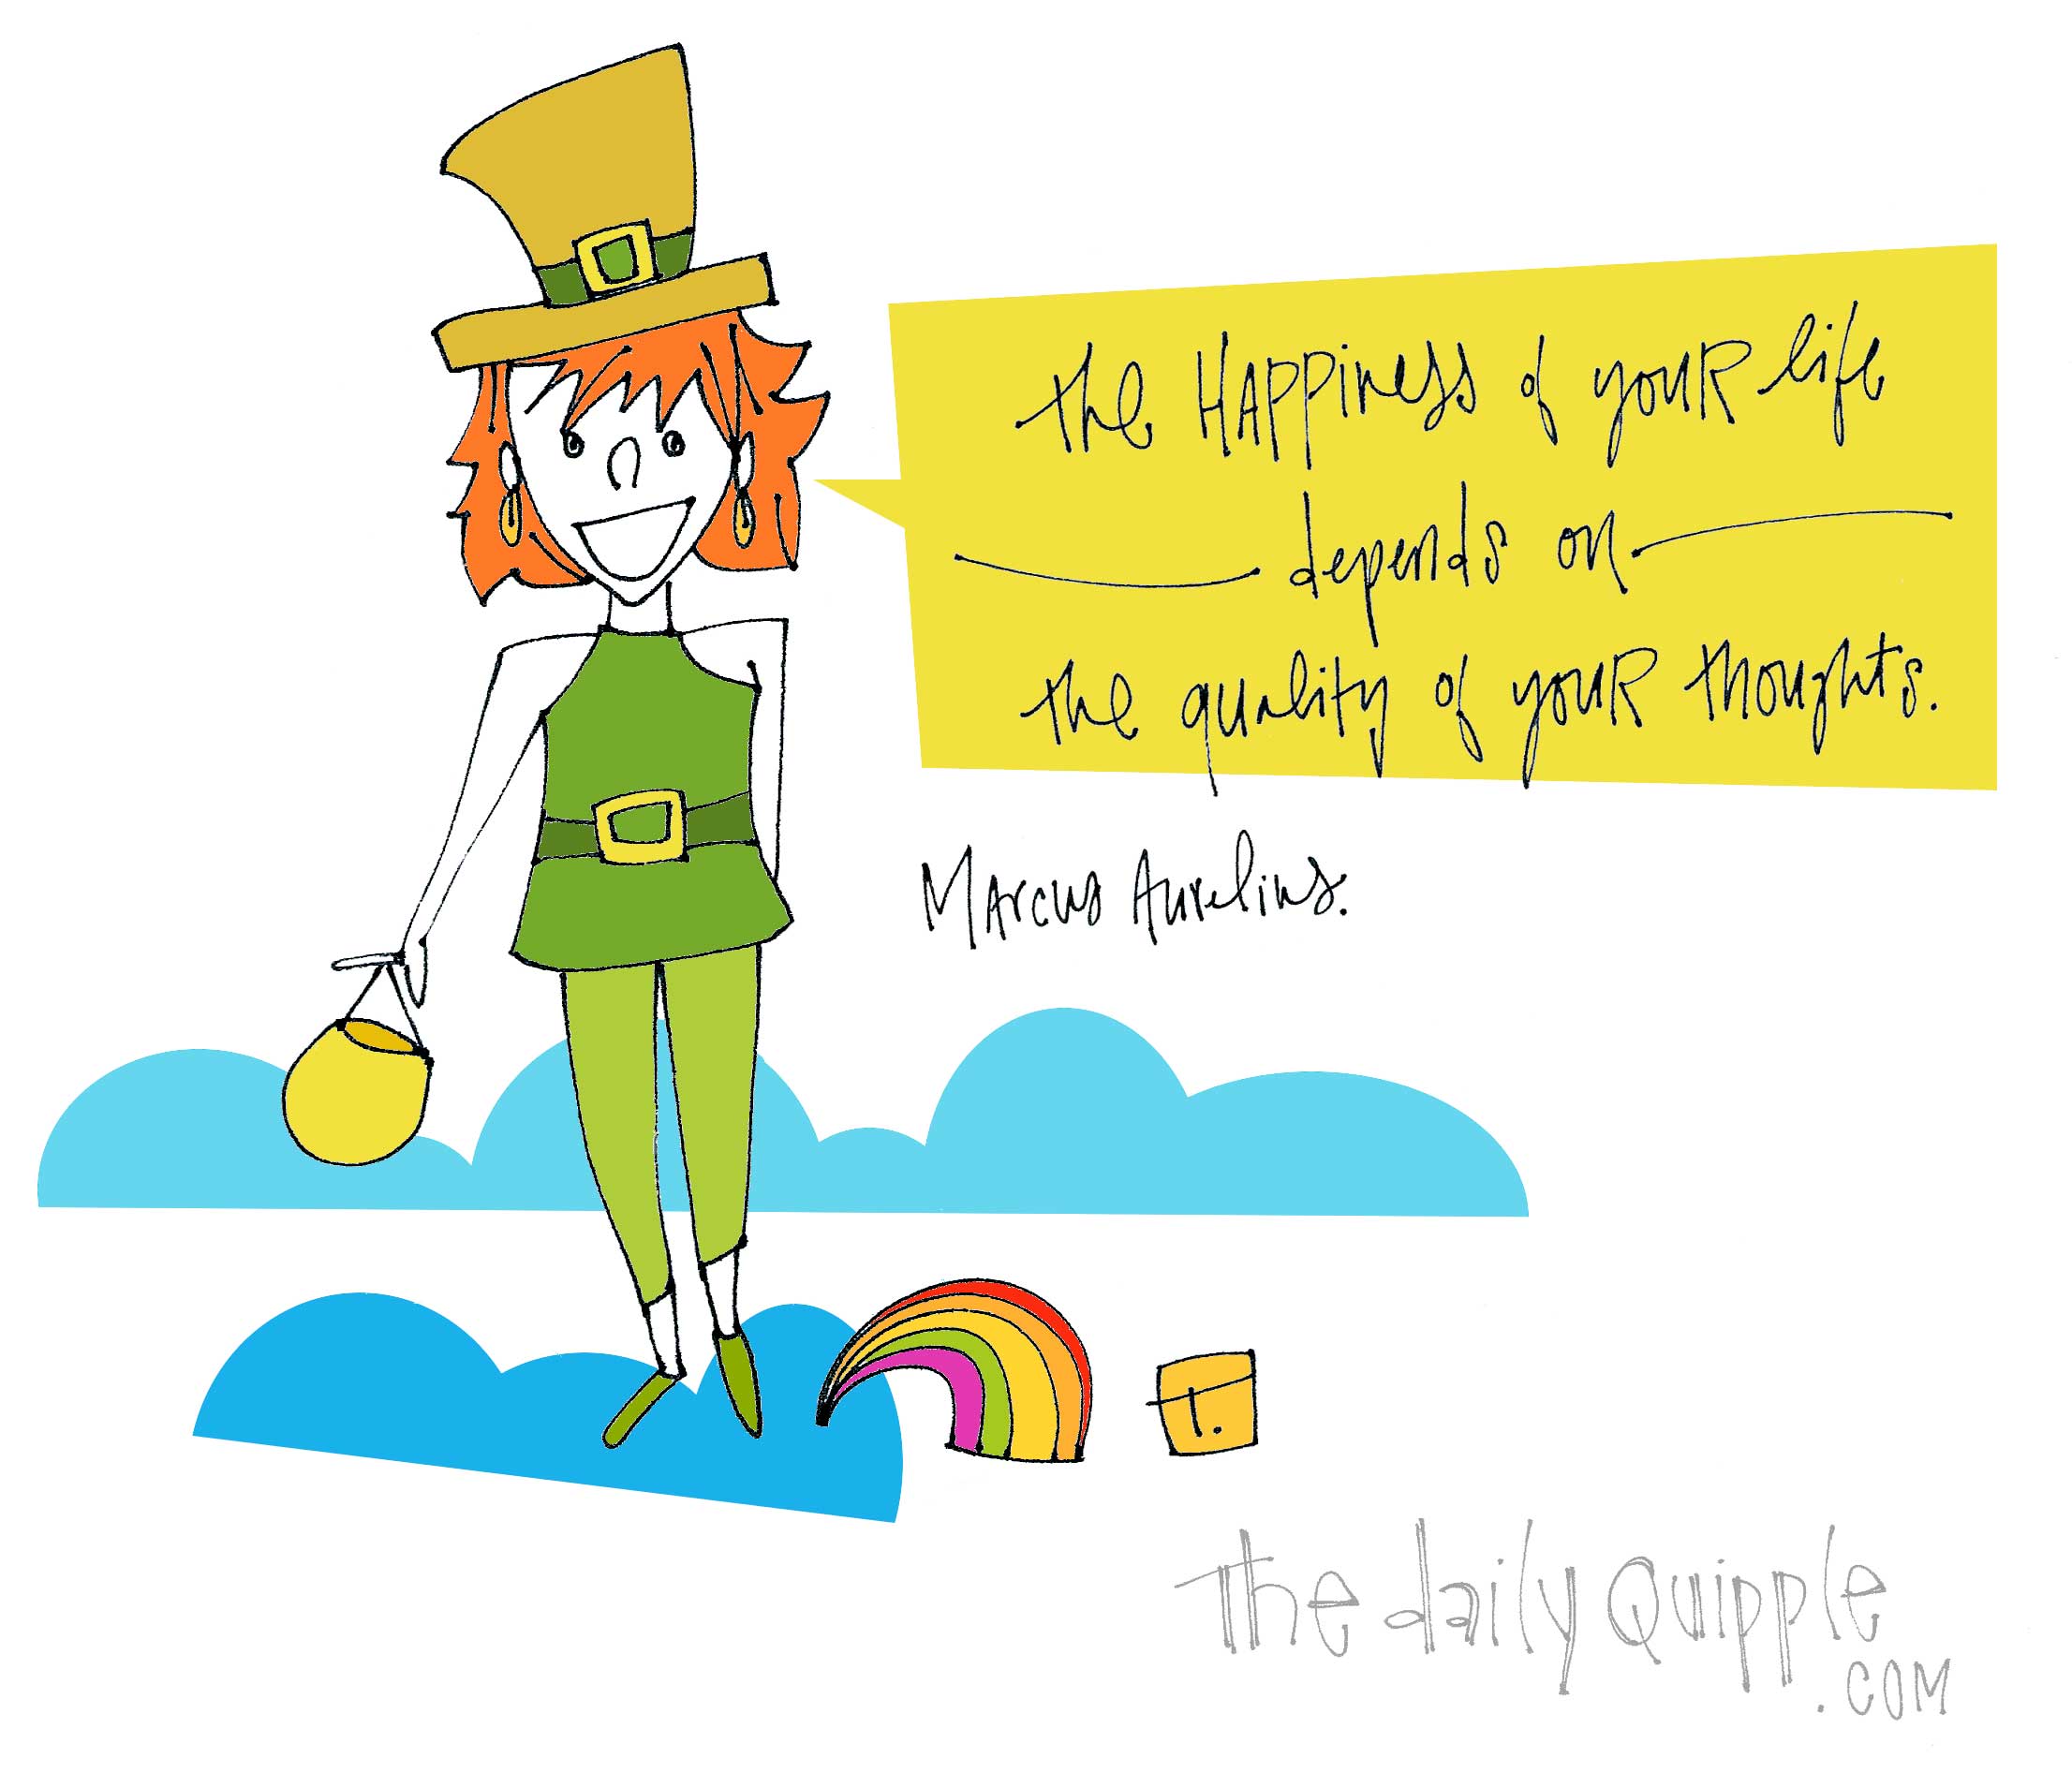 the HAPPiness of youR life
depends on
the quality of youR thoughts.
Marcus Aurelius.
t.
The daily Quipple
.COM